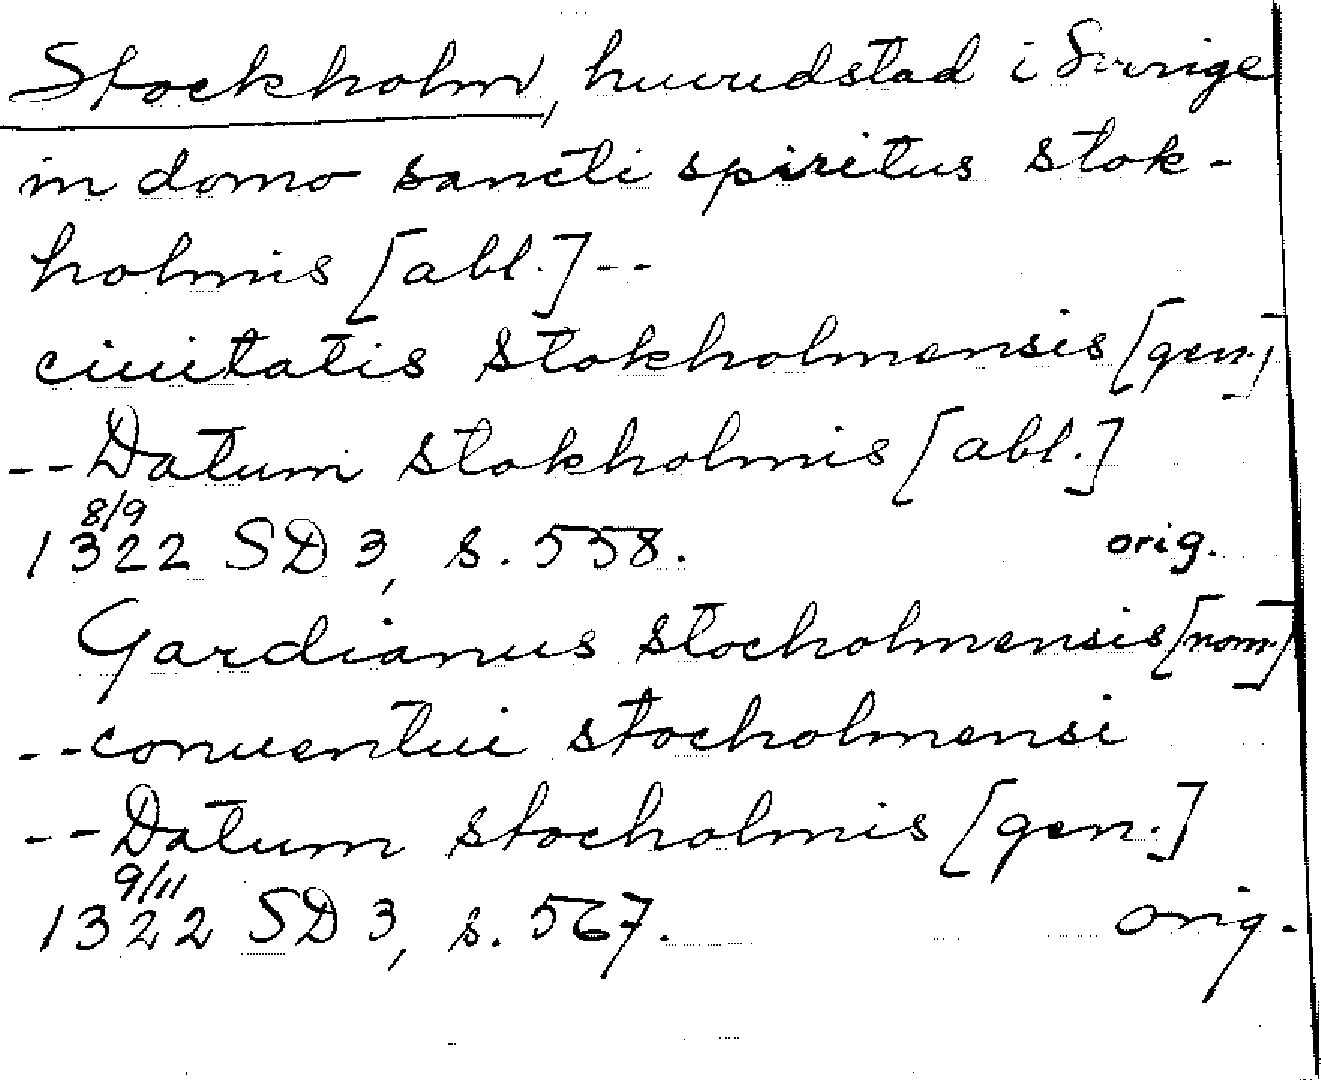 Stockholm, huvudstad i Sverige
in domo sancti spiritus stok-
holmis [abl.] --
ciuitatis stokholmensis [gen.]
-- Datum stokholmis [abl.]
8/9
1322 SD 3, s. 558. orig.
Gardianus stocholmensis [nom.]
-- conuentui stocholmensi
-- Datum stocholmis [gen.]
9/11
1322 SD 3, s. 567. orig.